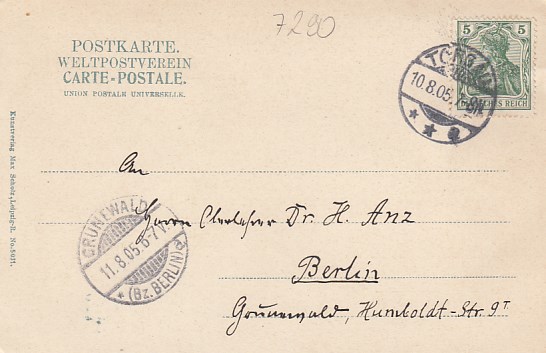 7290
POSTKARTE.
WELTPOSTVEREIN
CARTE-POSTALE.
UNION POSTALE UNIVERSELLE.
5 5
DEUTSCHES REICH
TORGAU
10.8.05.7-8N.
* * e
Kunstverlag Max Scholz, Leipzig-R.
An
Herrn Oberlehrer Dr. H. Anz
Berlin
Grunewald, Humboldt-Str. 9I
GRUNEWALD
11.8.05 6-7 V.
* (Bz. BERLIN) a